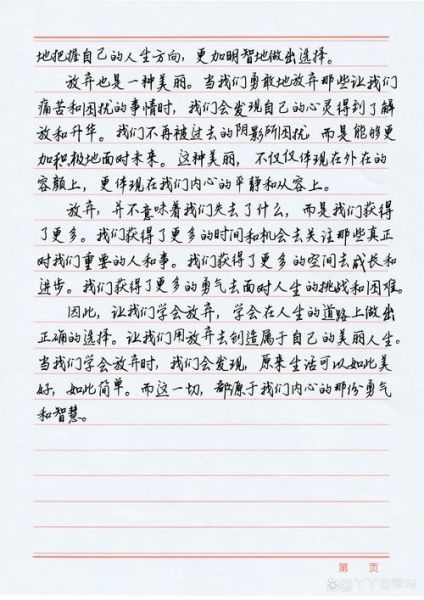 地把握自己的人生方向，更加明智地做出选择。
放弃也是一种美丽。当我们勇敢地放弃那些让我们
痛苦和困扰的事情时，我们会发现自己的心灵得到了解
放和升华。我们不再被过去的阴影所困扰，而是能够更
加积极地面对未来。这种美丽，不仅仅体现在外在的
容颜上，更体现在我们内心的平静和从容上。
放弃，并不意味着我们失去了什么，而是我们获得
了更多。我们获得了更多的时间和机会去关注那些真正
对我们重要的人和事。我们获得了更多的空间去成长和
进步。我们获得了更多的勇气去面对人生的挑战和困难。
因此，让我们学会放弃，学会在人生的道路上做出
正确的选择。让我们用放弃去创造属于自己的美丽人生。
当我们学会放弃时，我们会发现，原来生活可以如此美
好，如此简单。而这一切，都源于我们内心的那份勇气
和智慧。
第 页